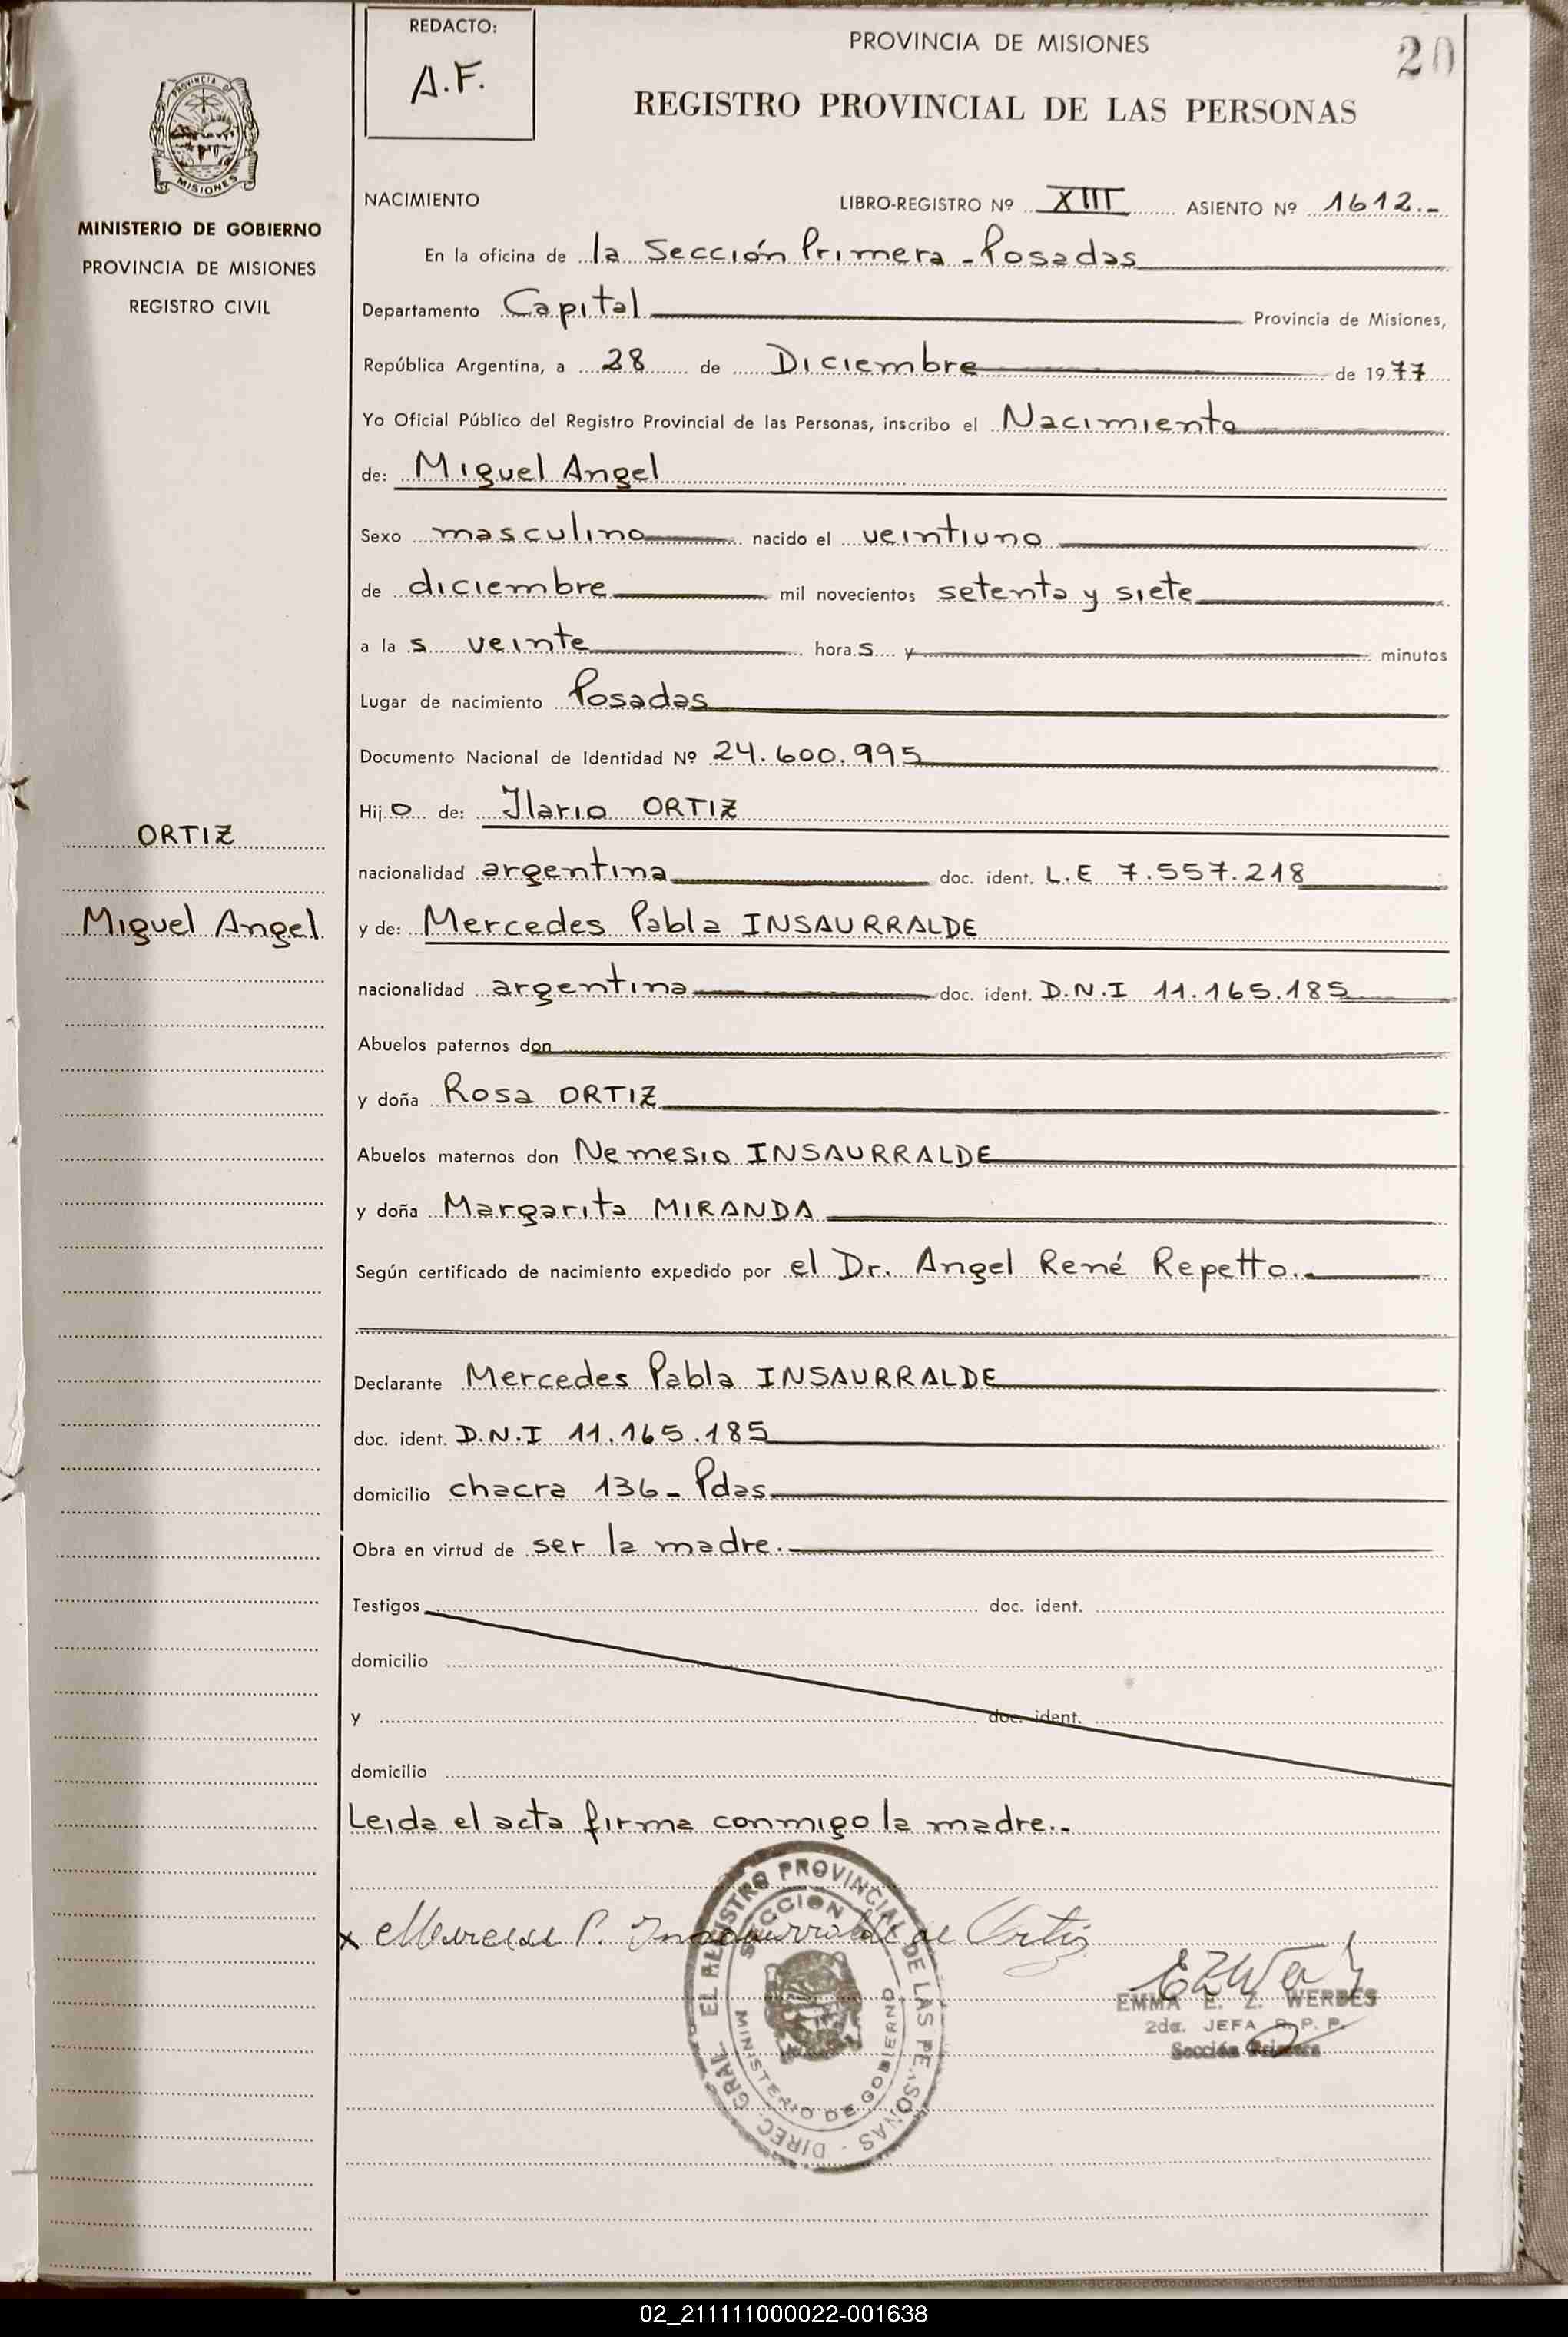 REDACTO:
A.F.
PROVINCIA DE MISIONES
20
REGISTRO PROVINCIAL DE LAS PERSONAS
PROVINCIA DE
MISIONES
MINISTERIO DE GOBIERNO
PROVINCIA DE MISIONES
REGISTRO CIVIL
NACIMIENTO LIBRO-REGISTRO Nº XIII ASIENTO Nº 1612.-
En la oficina de la Sección Primera - Posadas
Departamento Capital Provincia de Misiones,
República Argentina, a 28 de Diciembre de 1977
Yo Oficial Público del Registro Provincial de las Personas, inscribo el Nacimiento
de: Miguel Angel
Sexo masculino nacido el veintiuno
de diciembre mil novecientos setenta y siete
a la s veinte hora s y minutos
Lugar de nacimiento Posadas
Documento Nacional de Identidad Nº 24.600.995
Hij o de: Ilario ORTIZ
ORTIZ
nacionalidad argentina doc. ident. L.E 7.557.218
Miguel Angel
y de: Mercedes Pabla INSAURRALDE
nacionalidad argentina doc. ident. D.N.I 11.165.185
Abuelos paternos don
y doña Rosa ORTIZ
Abuelos maternos don Nemesio INSAURRALDE
y doña Margarita MIRANDA
Según certificado de nacimiento expedido por el Dr. Angel René Repetto.-
Declarante Mercedes Pabla INSAURRALDE
doc. ident. D.N.I 11.165.185
domicilio chacra 136 - Pdas.
Obra en virtud de ser la madre.-
Testigos doc. ident.
domicilio
y doc. ident.
domicilio
Leida el acta firma conmigo la madre.-
x Mercedes P. Insaurralde de Ortiz
DIREC. GRAL. EL REGISTRO PROVINCIAL DE LAS PERSONAS
SECCION
MINISTERIO DE GOBIERNO
EMMA E. Z. WERBES
2da. JEFA R. P. P.
Sección Primera
02_211111000022-001638